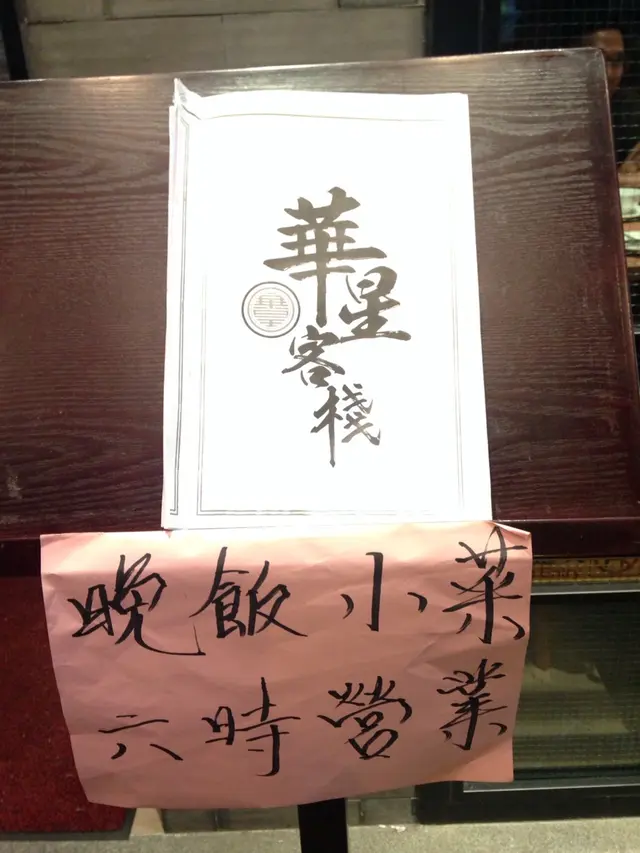 華星
客棧
晚飯小菜
六時營業